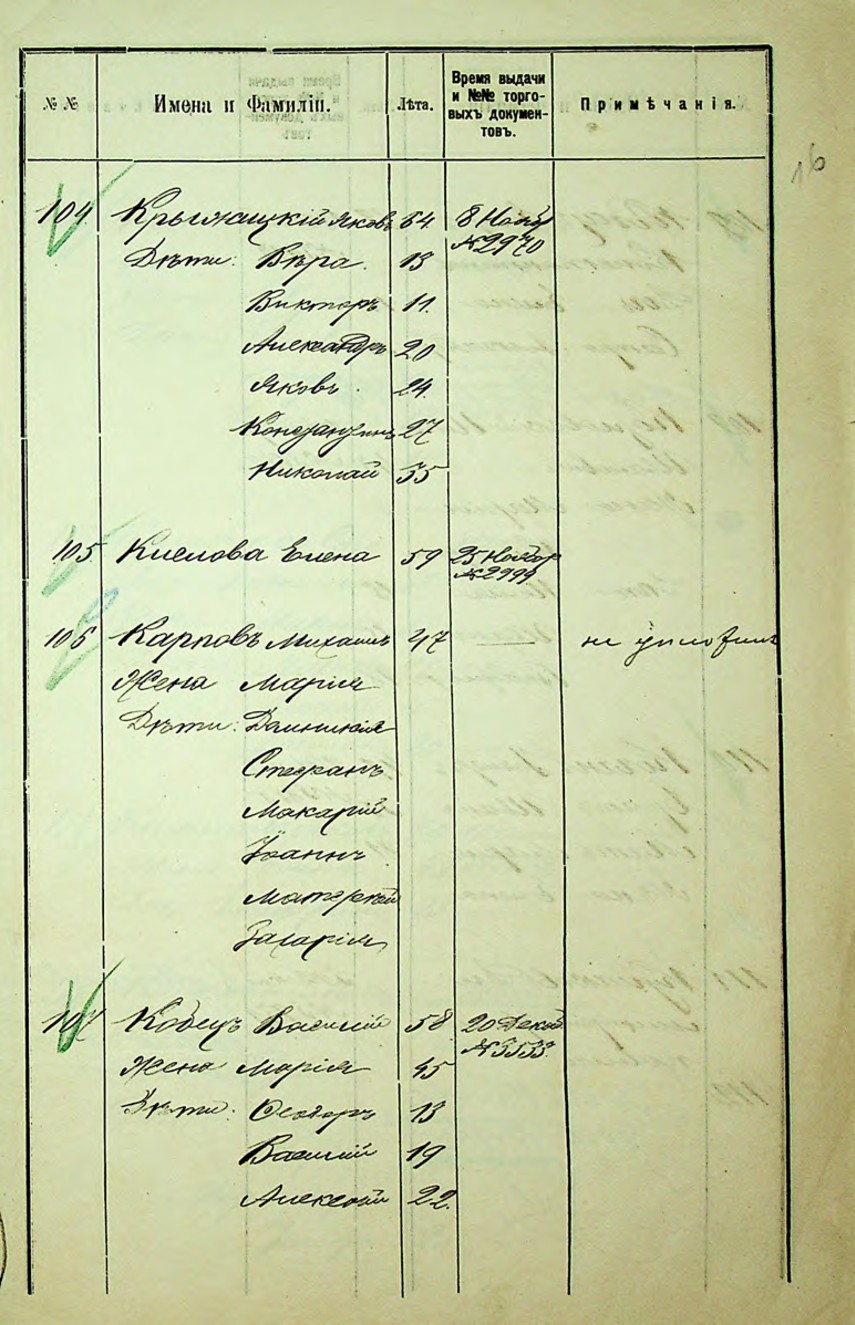 № №
Имена и Фамиліи.
Лѣта.
Время выдачи
и №№ торго-
выхъ докумен-
товъ.
Примѣчанія.
16
104 Крыжицкій Яковъ 64. 8 Нояб
№ 2970
Дѣти: Вѣра. 13
Викторъ 11.
Александръ 20
Яковъ. 24.
Константинъ 27
Николай 35
105 Елена 59 25 Нояб
№ 2999
106 Карповъ Михаилъ 47 —
Жена Марія
Дѣти:
Стефанъ
Макарій
Іоаннъ
Захарія
107 Кобецъ Василій 58 20 Декаб.
№ 3533.
Жена Марія 45
Дѣти: Ѳеодоръ 13
Василій 19
Алексѣй 22.